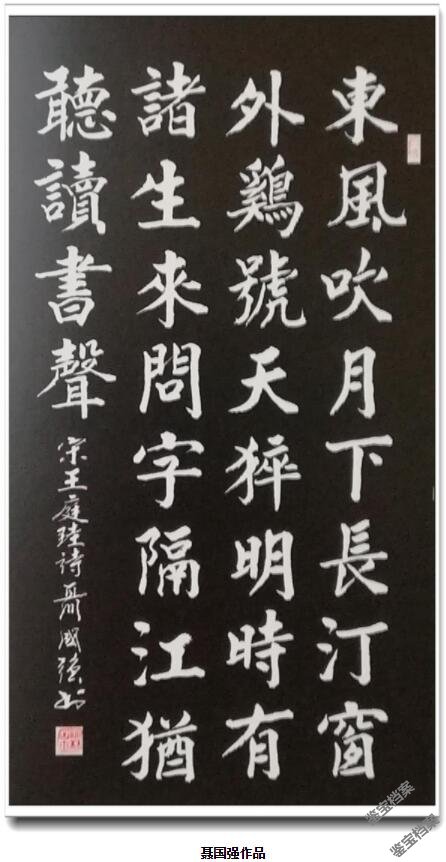 東風吹月下長汀窗
外鷄號天猝明時有
諸生來問字隔江猶
聽讀書聲
宋王庭珪詩聶國強书
鉴宝档案
鉴宝档案
聂国强作品